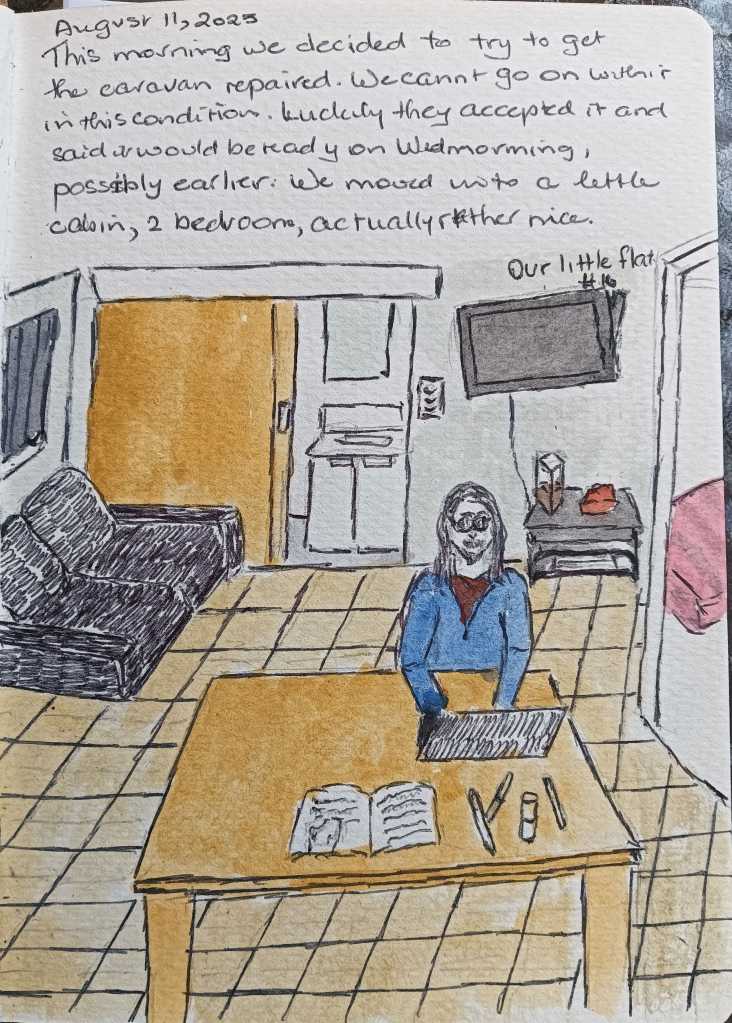 August 11, 2025
This morning we decided to try to get
the caravan repaired. We cannt go on with it
in this condition. Luckily they accepted it and
said it would be ready on Wedmorming,
possibly earlier. We moved into a little
cabin, 2 bedrooms, actually rather nice.
Our little flat
#16